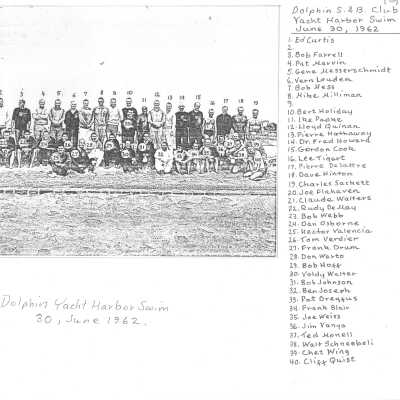 Dolphin S.&B. Club
Yacht Harbor Swim
June 30, 1962
1. Ed Curtis
2.
3. Bob Farrell
4. Pat Marvin
5. Gene Messerschmidt
6. Vern Louden
7. Bob Hess
8. Mike Milliman
9.
10. Bert Holiday
11. Ike Papke
12. Lloyd Quinan
13. Pierre Hathaway
14. Dr. Fred Howard
15. Gordon Cook
16. Lee Tigert
17. Pierre Delacre
18. Dave Hinton
19. Charles Sackett
20. Joe Plahaven
21. Claude Walters
22. Rudy DeMay
23. Bob Webb
24. Dan Osborne
25. Hector Valencia
26. Tom Verdier
27. Frank Drum
28. Don Warto
29. Bob Hoff
30. Valdy Walter
31. Bob Johnson
32. Ben Joseph
33. Pat Dreyfus
34. Frank Blair
35. Joe Weiss
36. Jim Yanya
37. Ted Monell
38. Walt Schneebeli
39. Chet Wing
40. Cliff Quist
Dolphin Yacht Harbor Swim
30, June 1962.